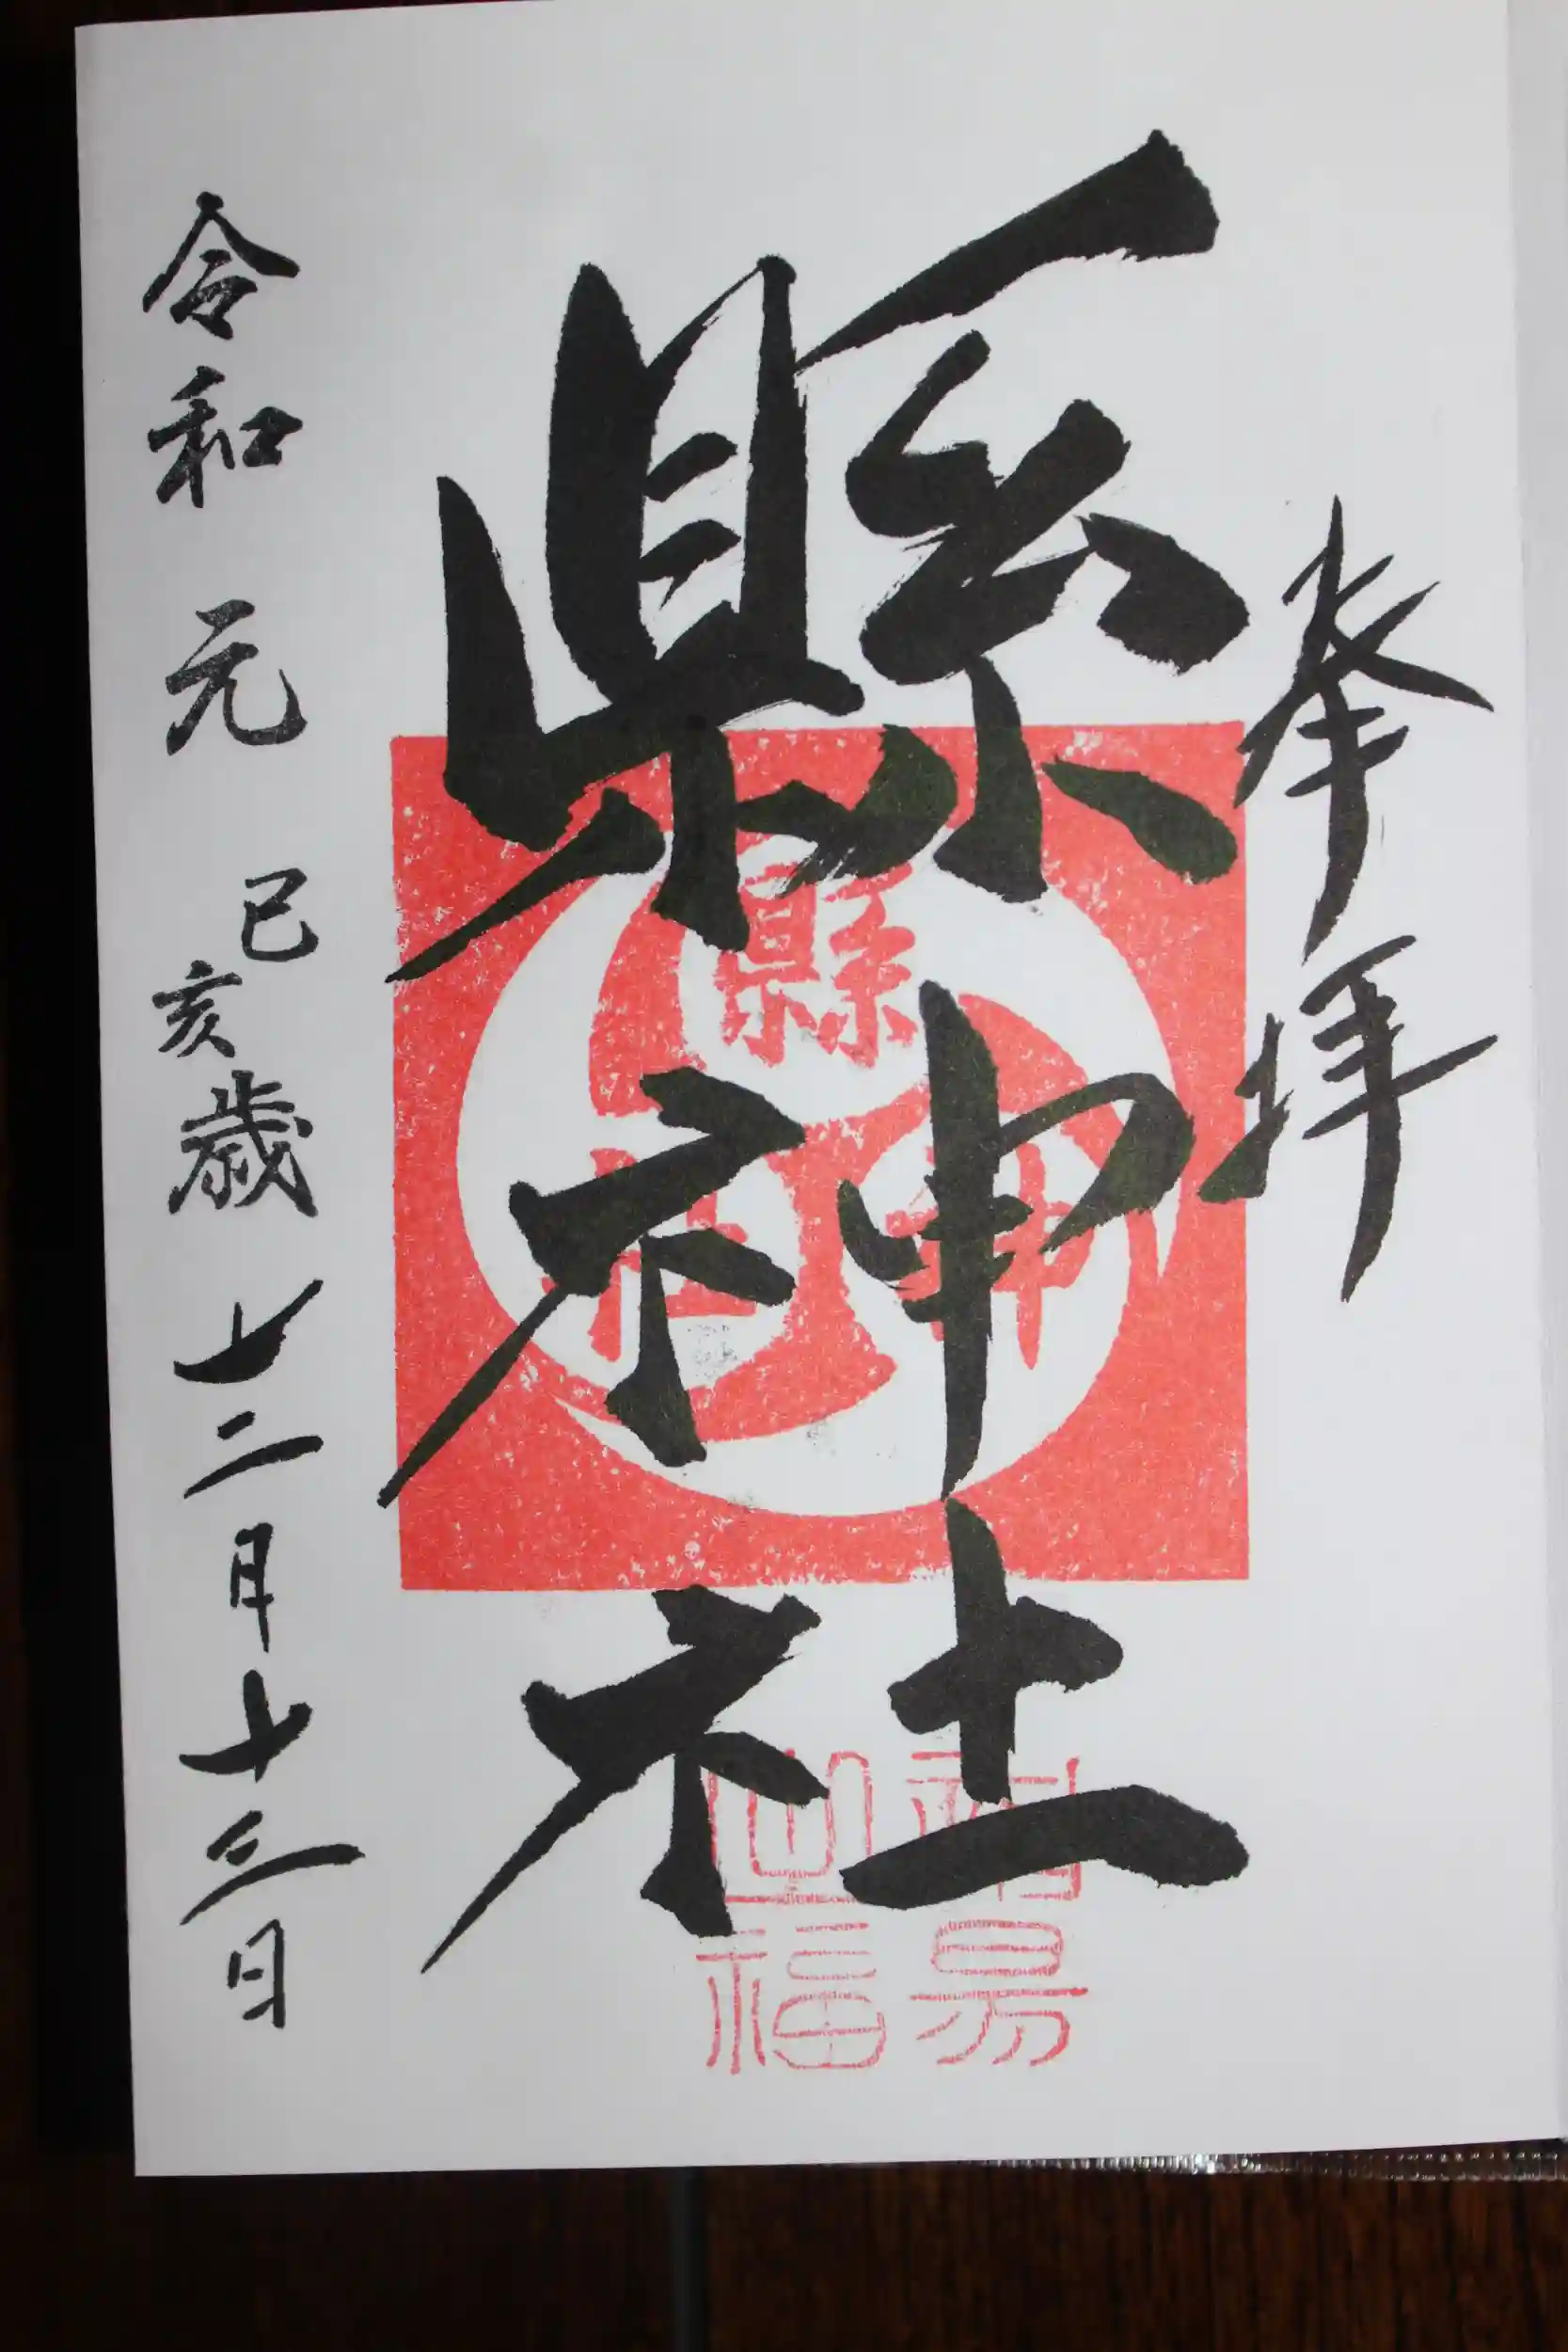 奉拝
縣神社
縣神社
令和元己亥歳十二月十三日